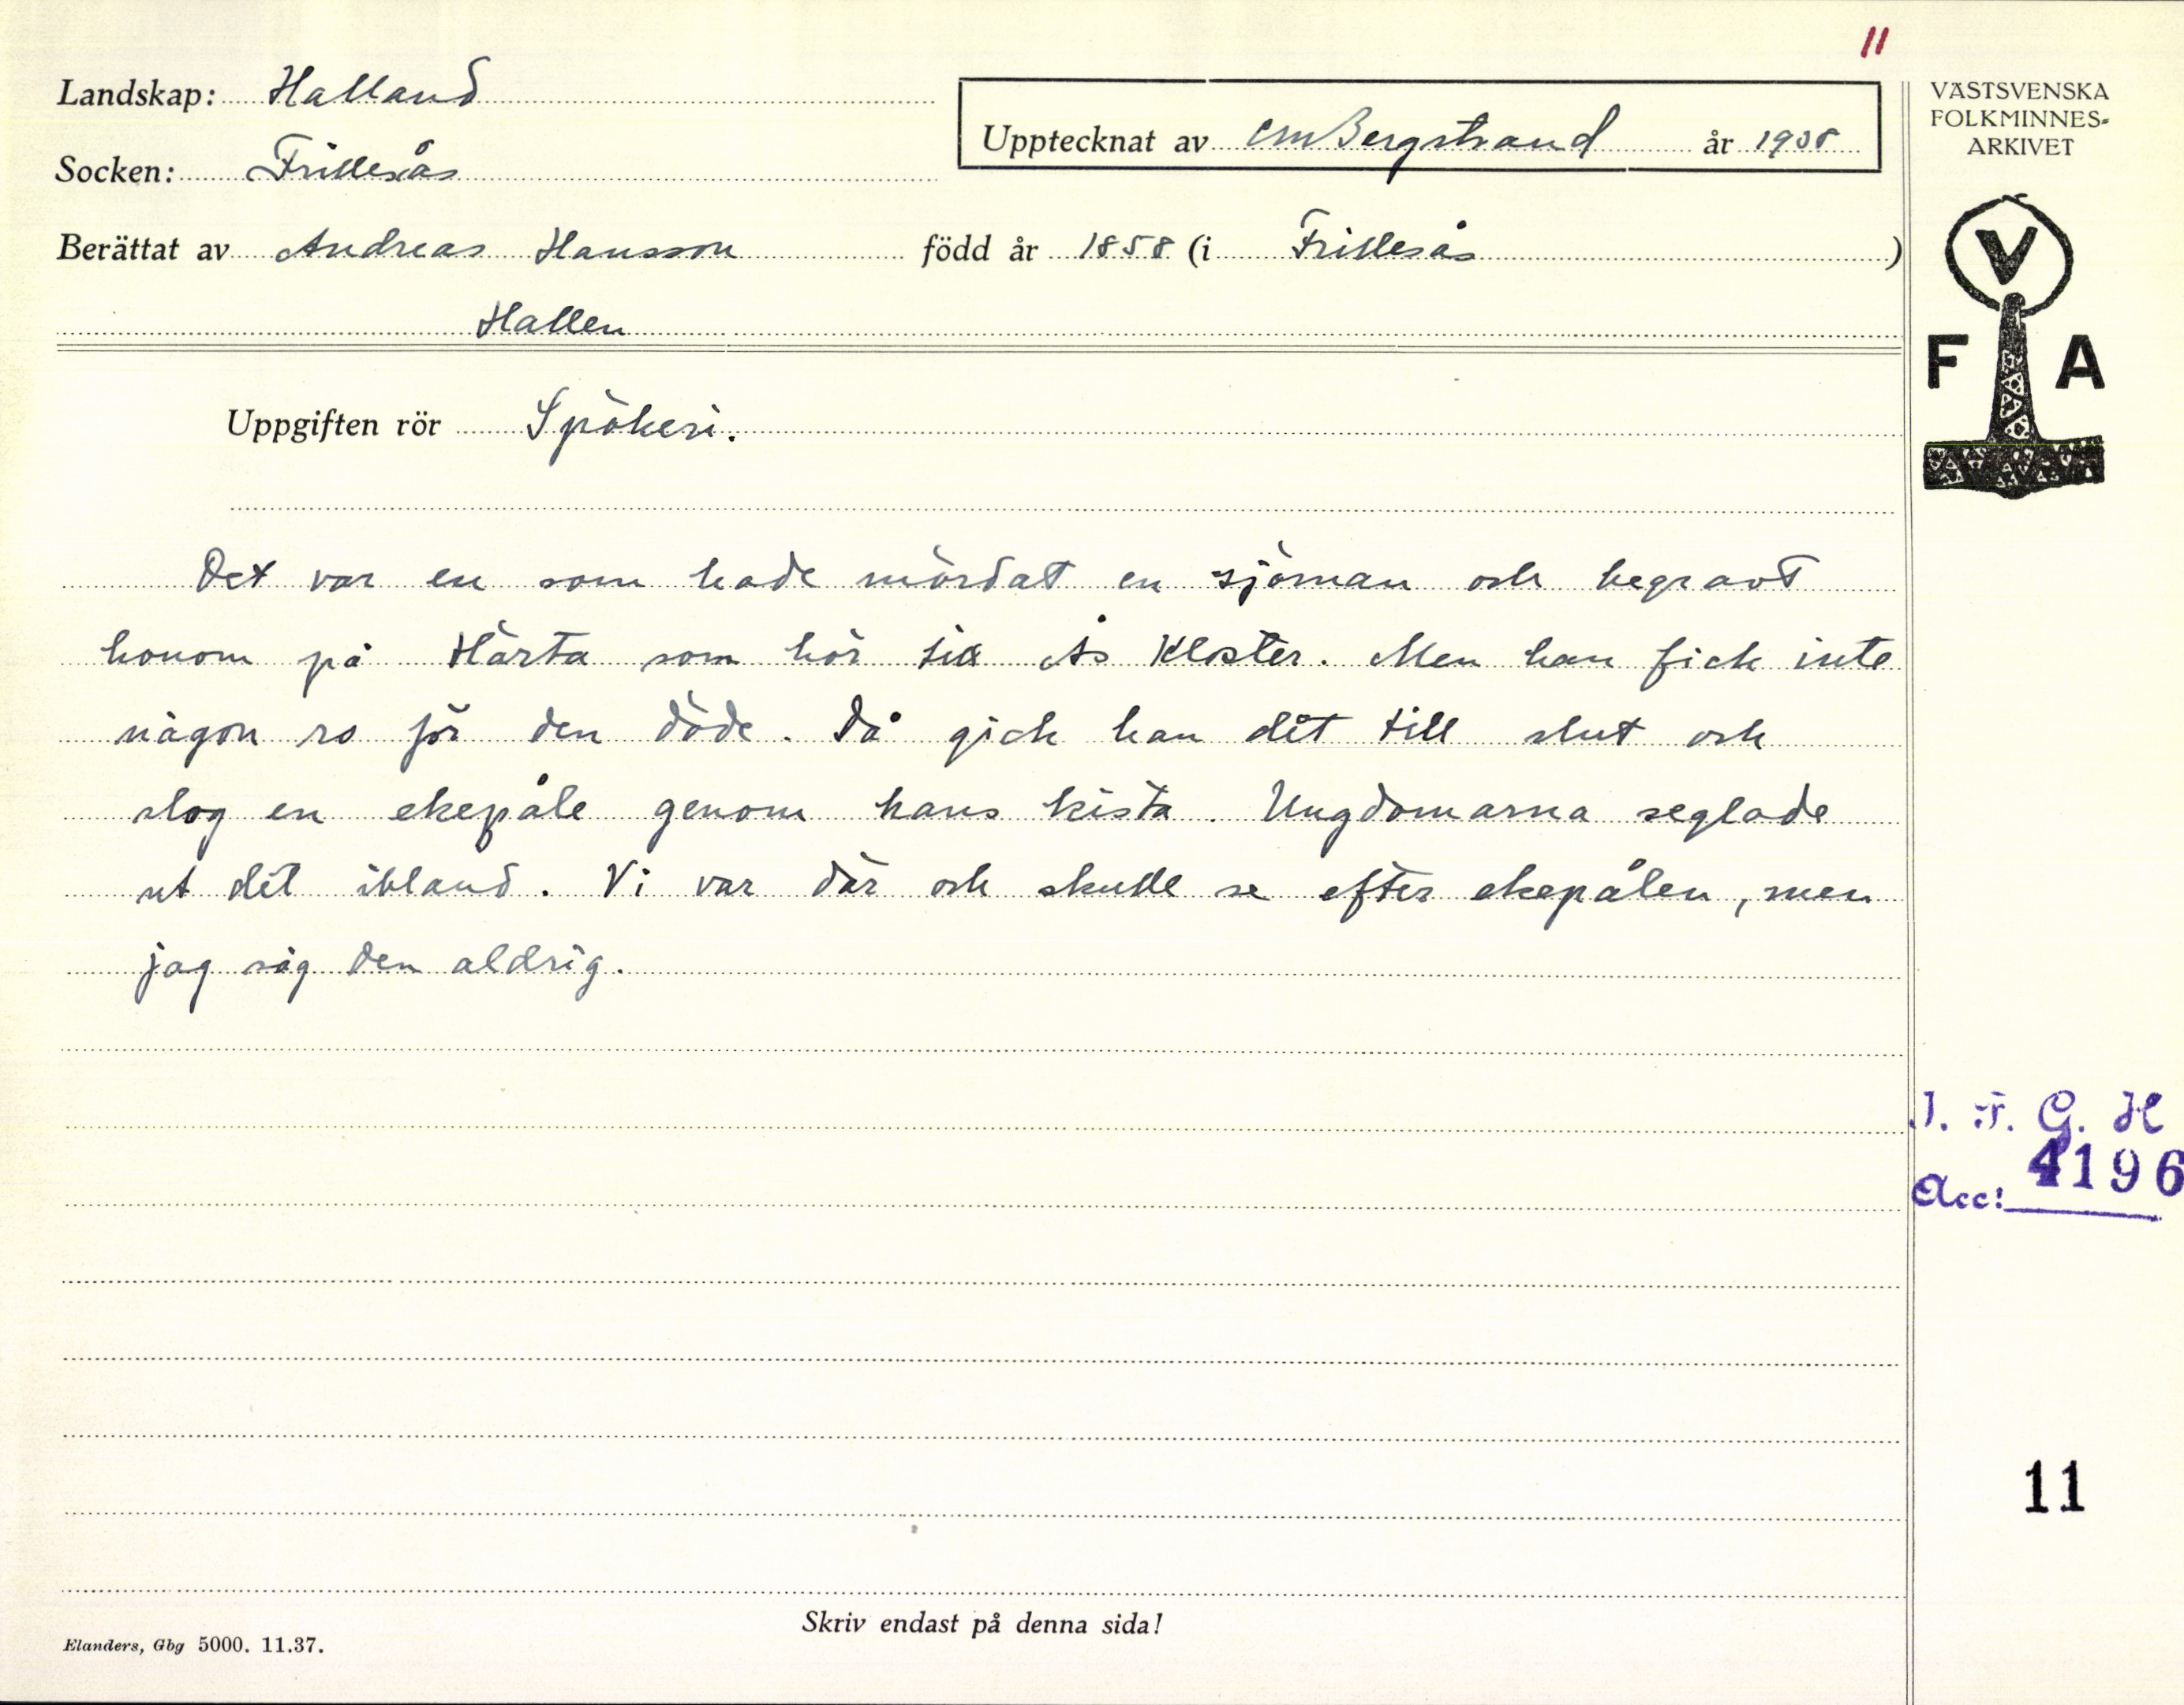 11
Landskap: Halland
Socken: Frillesås
Upptecknat av CM Bergstrand år 1938
VÄSTSVENSKA
FOLKMINNES-
ARKIVET
Berättat av Andreas Hansson född år 1858 (i Frillesås )
Hallen
V
F A
Uppgiften rör Spökeri.
Det var en som hade mördat en sjöman och begravt
honom på Härta som hör till Ås Kloster. Men han fick inte
någon ro för den döde. Då gick han dit till slut och
slog en ekepåle genom hans kista. Ungdomarna seglade
ut dit ibland. Vi var där och skulle se efter ekepålen, men
jag såg den aldrig.
I. F. G. H
Acc! 4196
11
Skriv endast på denna sida!
Elanders, Gbg 5000. 11.37.